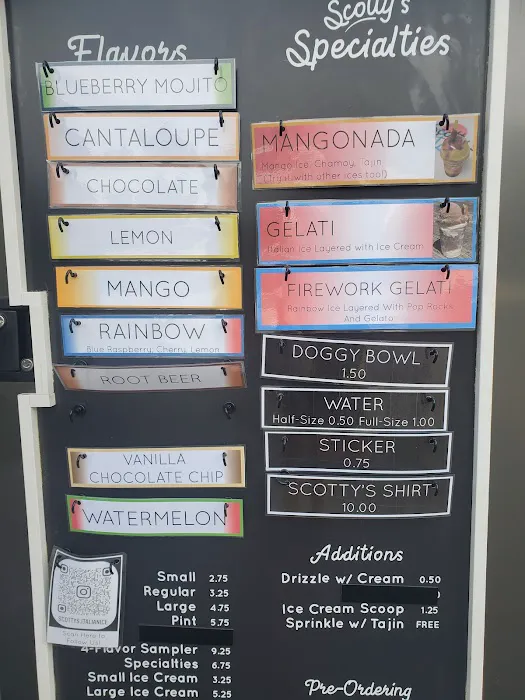 Flavors
BLUEBERRY MOJITO
CANTALOUPE
CHOCOLATE
LEMON
MANGO
RAINBOW
Blue Raspberry, Cherry, Lemon
ROOT BEER
VANILLA
CHOCOLATE CHIP
WATERMELON
SCOTTYSITALIANICE
Scan Here to
Follow Us!
Small 2.75
Regular 3.25
Large 4.75
Pint 5.75
4-Flavor Sampler 9.25
Specialties 6.75
Small Ice Cream 3.25
Large Ice Cream 5.25
Scotty's
Specialties
MANGONADA
Mango Ice, Chamoy, Tajin
(Try it with other ices too!)
GELATI
Italian Ice Layered with Ice Cream
FIREWORK GELATI
Rainbow Ice Layered With Pop Rocks
And Gelato
DOGGY BOWL
1.50
WATER
Half-Size 0.50 Full-Size 1.00
STICKER
0.75
SCOTTY'S SHIRT
10.00
Additions
Drizzle w/ Cream 0.50
Ice Cream Scoop 1.25
Sprinkle w/ Tajin FREE
Pre-Ordering